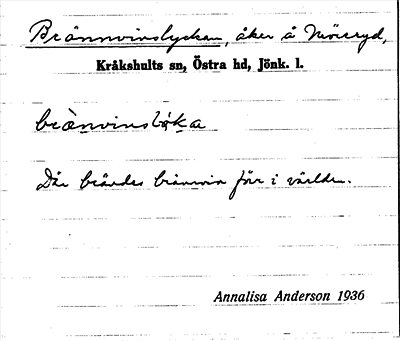 Brännvinslyckan, åker å Mörsryd,
Kråkshults sn, Östra hd, Jönk. l.
brä̀nvinslø̨ka
Där brändes brännvin förr i världen.
Annalisa Anderson 1936